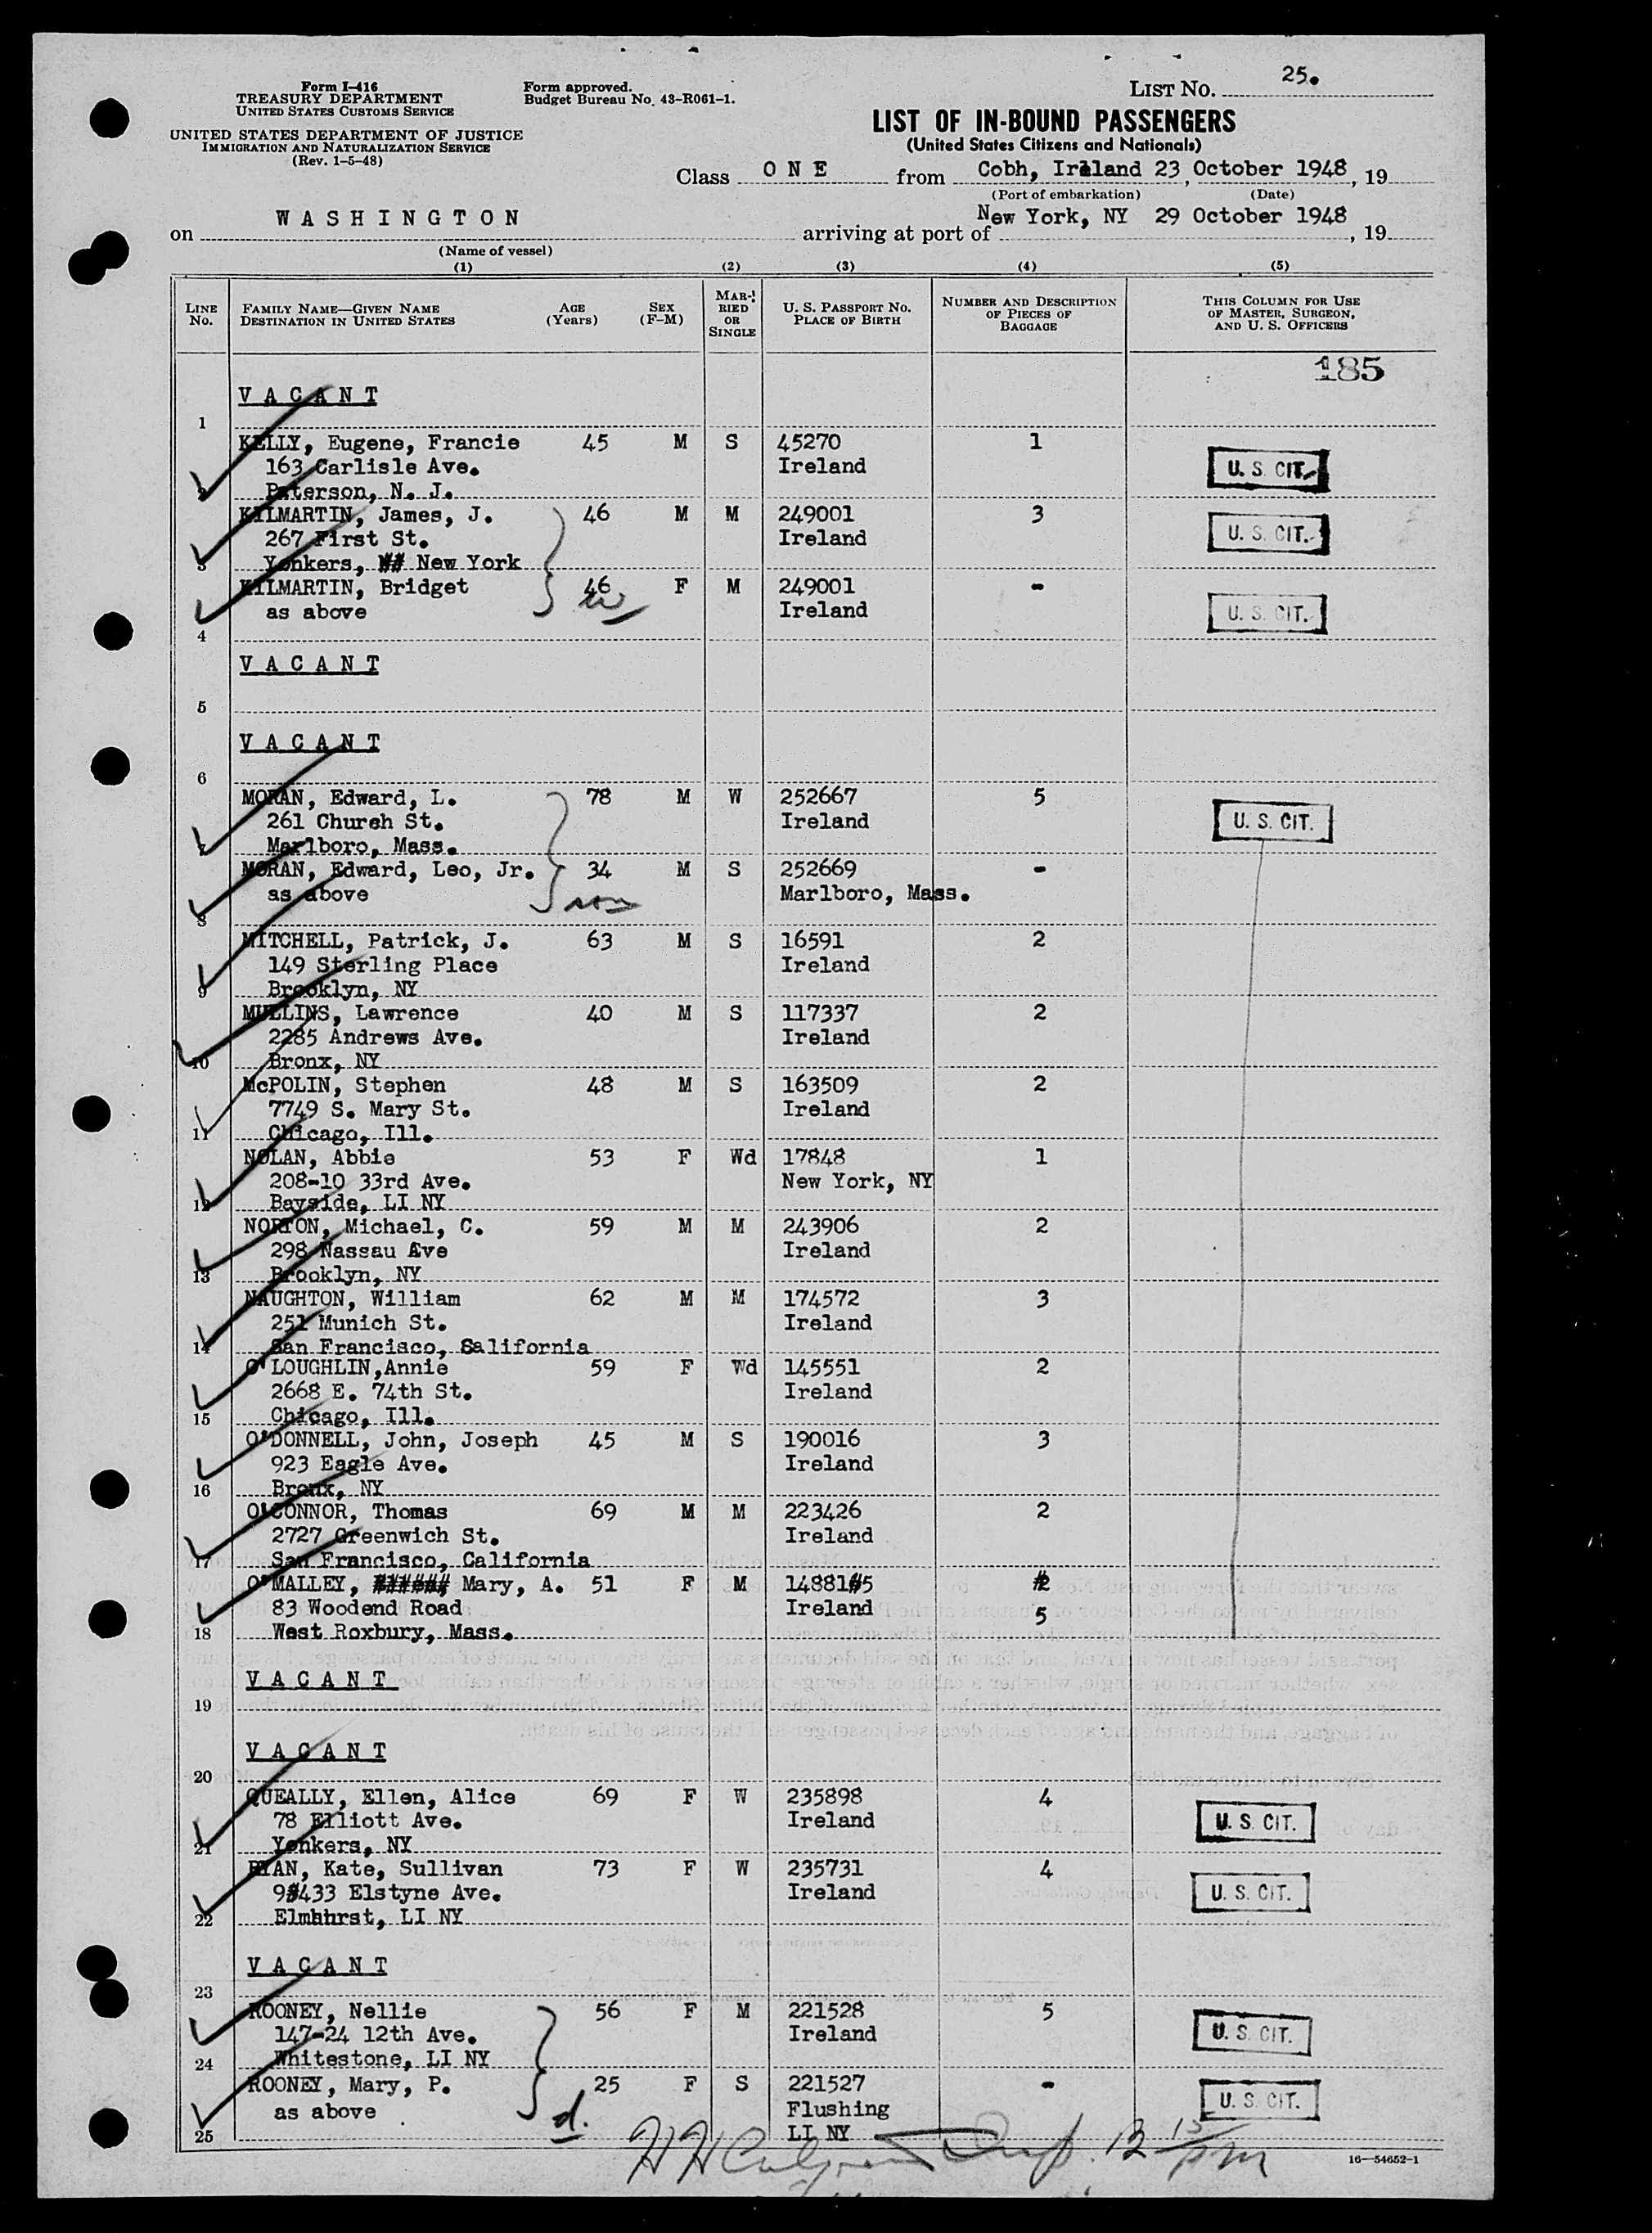 Form I-416
TREASURY DEPARTMENT
UNITED STATES CUSTOMS SERVICE
UNITED STATES DEPARTMENT OF JUSTICE
IMMIGRATION AND NATURALIZATION SERVICE
(Rev. 1-5-48)
Form approved.
Budget Bureau No. 43-R061-1.
LIST NO. 25.
LIST OF IN-BOUND PASSENGERS
(United States Citizens and Nationals)
Class O N E from Cobh, Ireland 23, October 1948, 19
(Port of embarkation) (Date)
on W A S H I N G T O N arriving at port of New York, NY 29 October 1948, 19
(Name of vessel)
(1) (2) (3) (4) (5)
LINE No. FAMILY NAME—GIVEN NAME DESTINATION IN UNITED STATES AGE (Years) SEX (F-M) MARRIED OR SINGLE U. S. PASSPORT No. PLACE OF BIRTH NUMBER AND DESCRIPTION OF PIECES OF BAGGAGE THIS COLUMN FOR USE OF MASTER, SURGEON, AND U. S. OFFICERS
185
V A C A N T
1
KELLY, Eugene, Francie 45 M S 45270 1
163 Carlisle Ave. Ireland U. S. CIT.
2 Paterson, N. J.
KILMARTIN, James, J. 46 M M 249001 3
267 First St. Ireland U. S. CIT.
3 Yonkers, ## New York
KILMARTIN, Bridget 46 F M 249001 -
as above w Ireland U. S. CIT.
4
V A C A N T
5
V A C A N T
6
MORAN, Edward, L. 78 M W 252667 5
261 Church St. Ireland U. S. CIT.
7 Marlboro, Mass.
MORAN, Edward, Leo, Jr. 34 M S 252669 -
as above son Marlboro, Mass.
8
MITCHELL, Patrick, J. 63 M S 16591 2
149 Sterling Place Ireland
9 Brooklyn, NY
MULLINS, Lawrence 40 M S 117337 2
2285 Andrews Ave. Ireland
10 Bronx, NY
McPOLIN, Stephen 48 M S 163509 2
7749 S. Mary St. Ireland
11 Chicago, Ill.
NOLAN, Abbie 53 F Wd 17848 1
208-10 33rd Ave. New York, NY
12 Bayside, LI NY
NORTON, Michael, C. 59 M M 243906 2
298 Nassau Ave Ireland
13 Brooklyn, NY
NAUGHTON, William 62 M M 174572 3
251 Munich St. Ireland
14 San Francisco, California
O'LOUGHLIN,Annie 59 F Wd 145551 2
2668 E. 74th St. Ireland
15 Chicago, Ill.
O'DONNELL, John, Joseph 45 M S 190016 3
923 Eagle Ave. Ireland
16 Bronx, NY
O'CONNOR, Thomas 69 M M 223426 2
2727 Greenwich St. Ireland
17 San Francisco, California
O'MALLEY, ###### Mary, A. 51 F M 14881#5 2
83 Woodend Road Ireland 5
18 West Roxbury, Mass.
V A C A N T
19
V A C A N T
20
QUEALLY, Ellen, Alice 69 F W 235898 4
78 Elliott Ave. Ireland U. S. CIT.
21 Yonkers, NY
RYAN, Kate, Sullivan 73 F W 235731 4
9#433 Elstyne Ave. Ireland U. S. CIT.
22 Elmhhrst, LI NY
V A C A N T
23
ROONEY, Nellie 56 F M 221528 5
147-24 12th Ave. Ireland U. S. CIT.
24 Whitestone, LI NY
ROONEY, Mary, P. 25 F S 221527 -
as above d. Flushing U. S. CIT.
25 LI NY
16—54652-1